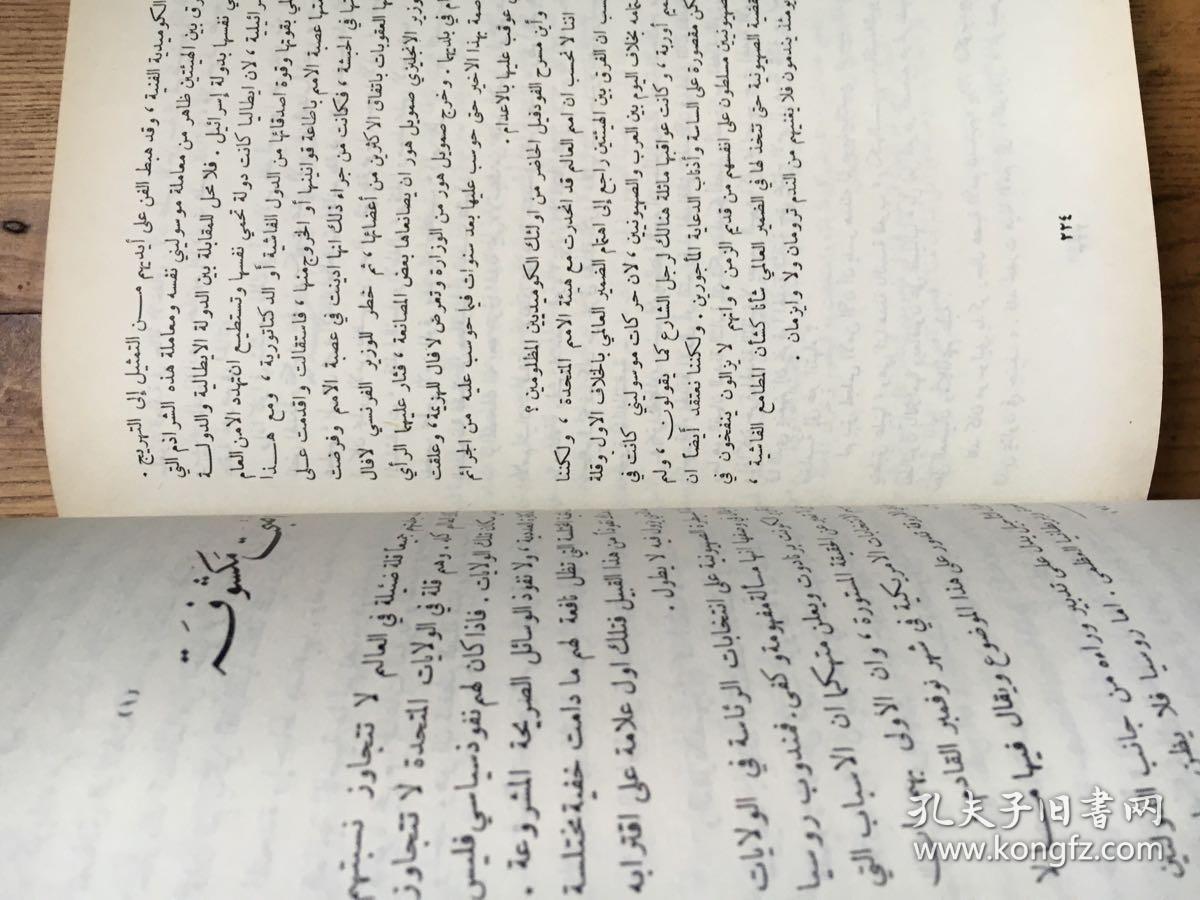 الكوميدية الفنية ، وقد هبط الفن على أيديهم مــن التمثيل إلى التهريج .
رق بين الهيئتين ظاهر من معاملة موسوليني نفسه ومعاملة هذه الشراذم التي
نفسها بدولة إسرائيل . فلا محل للمقابلة بين الدولة الايطالية والدولــة
سرائيلية ، لأن ايطاليا كانت دولة تحمي نفسها وتستطيع ان تهدد الامن العام
بقوتها وقوة اصدقائها من الدول الفاشية أو الدكتاتورية ، ومع هــذا
عصبة الامم باطاعة قوانينها أو الخروج منها ، فاستقالت واقدمت عــلى
في الحبشة ، فكانت من جراء ذلك انها ادينت في عصبة الامم وفرضت
العقوبات باتفاق الاكثرين من أعضائها ، ثم خطر للوزير الفرنسي لافال
وزير الانجليزي صمويل هور ان يصانعاها بعض المصانعة ، فثار عليهما الرأي
ام في بلديهما . وخرج صمويل هور من الوزارة وتعرض لافال للهزيمة ، وعلقت
صمة بهذا الاخير حتى حوسب عليها بعد سنوات فيما حوسب عليه من الجرائم
عوقب عليها بالاعدام .
وأين مسرح الفودفيل الحاضر من اولئك الكوميديين المظلومين ؟
اننا لا نحسب ان امم العالم قد انحدرت مع هيئة الامم المتحدة ، ولكننا
سب ان الفرق بين الهيئتين راجع إلى اهتمام الضمير العالمي بالخلاف الاول وقلة
تمامه بخلاف اليوم بين العرب والصهيونيين ، لان حركات موسوليني كانت في
أوربة ، وكانت عواقبها ماثلة هنالك لرجل الشارع كما يقولون ، ولم
كن مقصورة على الساسة وأذناب الدعاية المأجورين . ولكننا نعتقد أيضاً ان
صهيونيين مسلطون على انفسهم من قديم الزمن ، وانهم لا يزالون ينفخون في
الصهيونية حتى تتخذ لها في الضمير العالمي شأنا كشأن المطامع الفاشية ،
يومئذ يندمون فلا يغنيهم من الندم ترومان ولا وايزمان .
٢٢٤
مكشوفة
(١)
قلة ضئيلة في العالم لا تتجاوز نسبتهم
وهم قلة في الولايات المتحدة لا تتجاوز
الولايات . فاذا كان لهم نفوذ سياسي فليس
ولا نفوذ الوسائل الصريحة المشروعة .
التي تظل نافعة لهم ما دامت خفية مختلسة
من هذا القبيل فتلك اول علامة على اقترابه
لا يطول .
الصهيونية على انتخابات الرئاسة في الولايات
انها مسألة مفهومة وكفى . فمندوب روسيا
برنادوت ويعلن متهكما ان الاسباب التي
الحقيقة المستورة ، وان الاولى بهم
الامريكية في شهر نوفمبر القادم
على هذا الموضوع ويقال فيها
يدل على تدبير وراءه من جانب
العظمى . اما روسيا فلا
孔夫子旧书网
www.kongfz.com